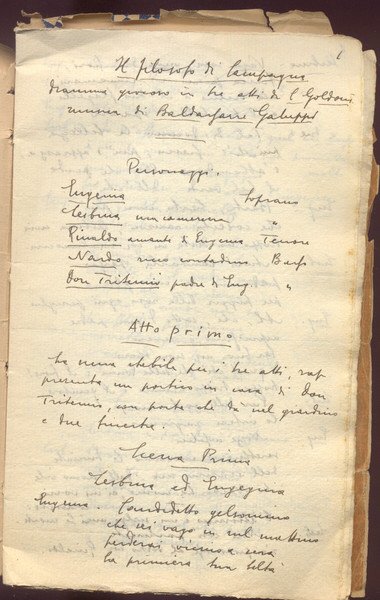 1
Il filosofo di Campagna
dramma giocoso in tre atti di C Goldoni
musica di Baldassarre Galuppi
Personaggi.
Eugenia Soprano
Lesbina sua cameriera "
Rinaldo amante di Eugenia Tenore
Nardo ricco contadino Basso
Don Tritemio padre di Eug "
Atto primo
La scena stabile per i tre atti, rap
presenta un portico in casa di Don
Tritemio, con porta che dà nel giardino
e due finestre.
Scena Prima
Lesbina ed Eugenia
Eugenia Candidetto gelsomino
che sei vago in sul mattino
perderai vicino a sera
la primiera tua beltà